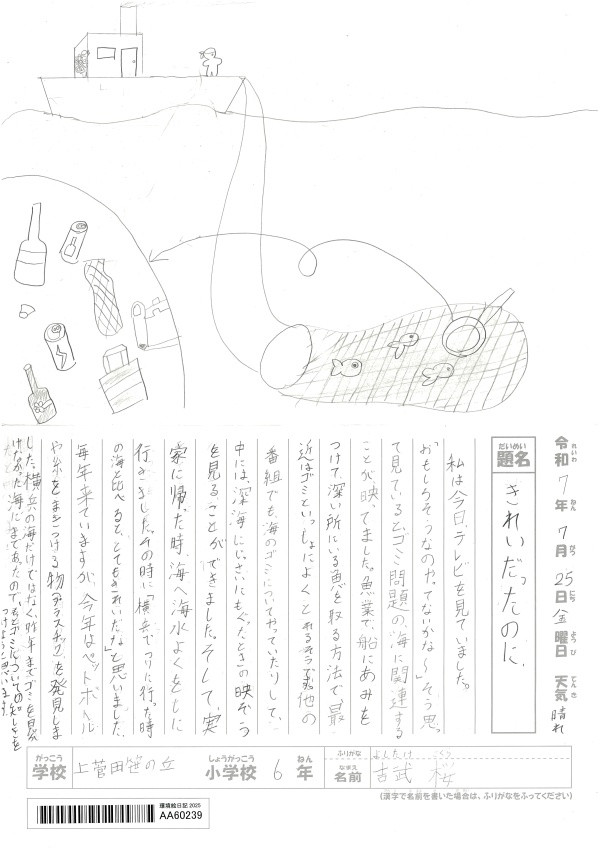 令和 れいわ 7年 ねん 7月 がつ 25日 にち 金曜日 ようび 天気 てんき 晴れ
題名 だいめい きれいだったのに、
私は今日、テレビを見ていました。
「おもしろそうなのやってないかな〜」そう思っ
て見ているとゴミ問題の、海に関連する
ことが映ってました。魚業で、船にあみを
つけて、深い所にいる魚を取る方法で最
近はゴミといっしょによくとれるそうです。他の
番組でも、海のゴミについてやっていたりして、
中には、深海にじっさいにもぐったときの映ぞう
を見ることができました。そして、実
家に帰った時、海へ海水よくをしに
行きました。その時に「横浜でつりに行った時
の海と比べると、とてもきれいだな」と思いました。
毎年来ていますが、今年はペットボトル
や糸をまきつける物(プラスチック)を発見しま
した。横浜の海だけではなく、昨年までゴミを見か
けなかった海にまであったので、もっとゴミについての知しきを
つけようと思います。
学校 がっこう 上菅田笹の丘 小学校 しょうがっこう 6年 ねん
ふりがな よしたけ さくら
名前 なまえ 古武 桜
(漢字で名前を書いた場合は、ふりがなをふってください)
環境絵日記 2025
AA60239